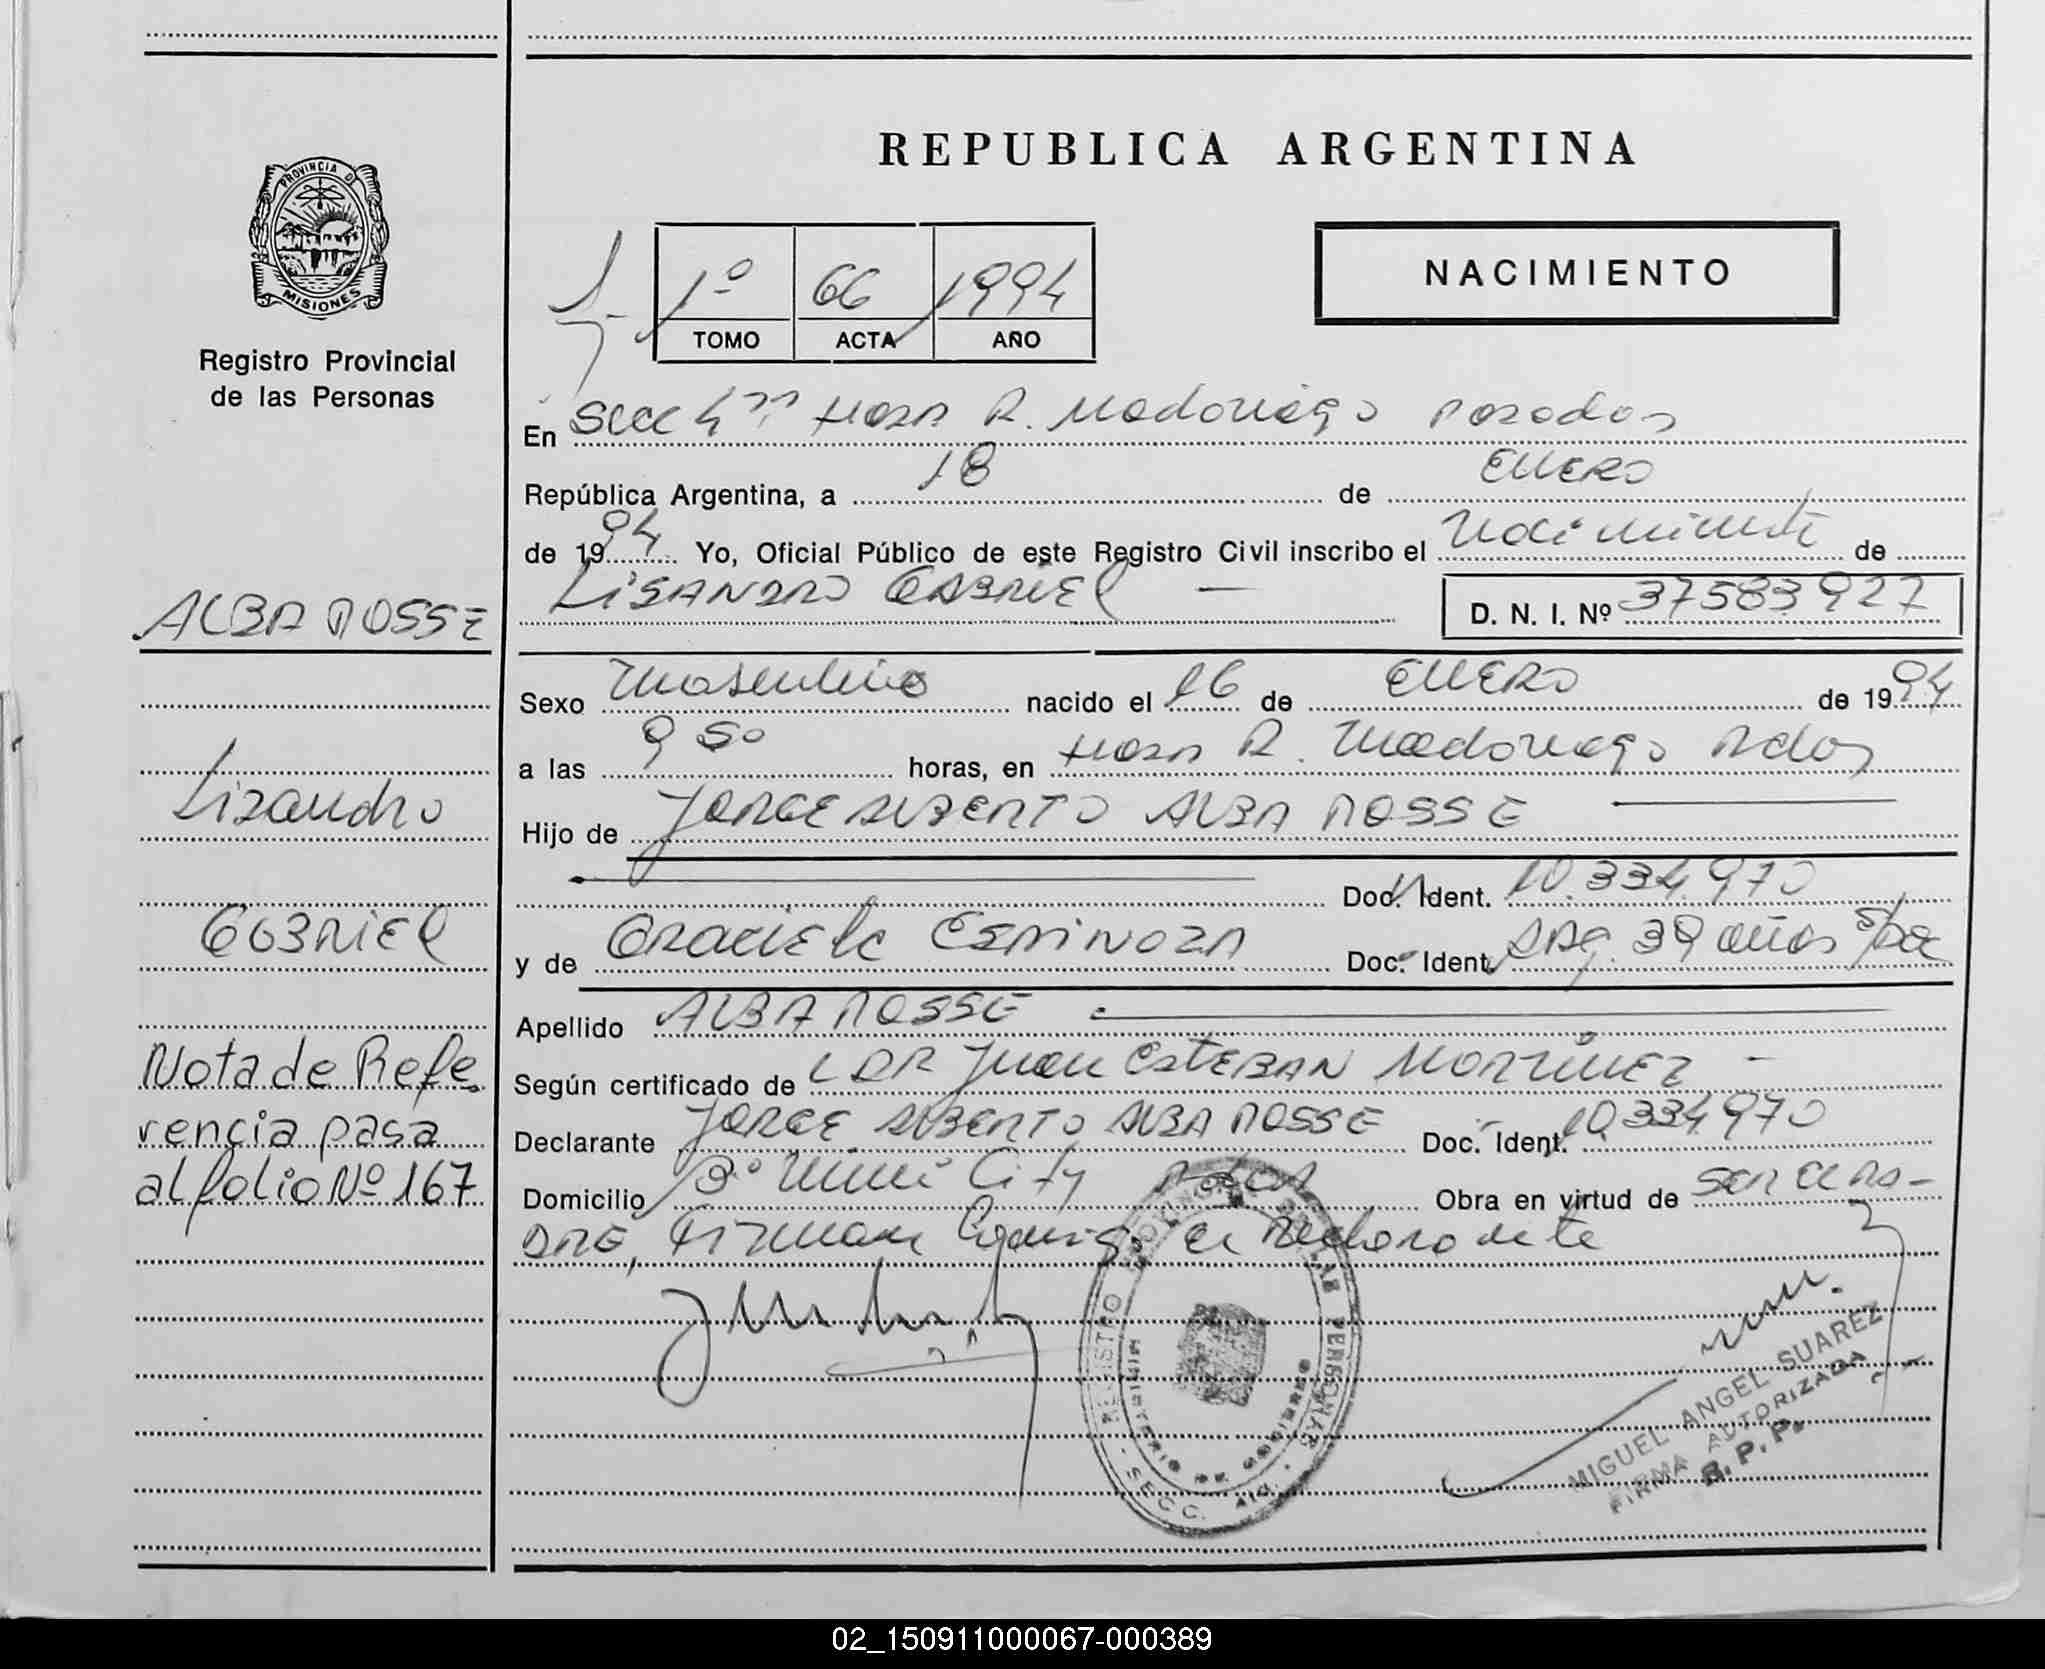 REPUBLICA ARGENTINA
PROVINCIA DE
MISIONES
Registro Provincial
de las Personas
1º 66 1994
TOMO ACTA AÑO
NACIMIENTO
En Secc 4ta Hosp R. Madariaga Posadas
República Argentina, a 18 de ENERO
de 1994 Yo, Oficial Público de este Registro Civil inscribo el Nacimiento de
LISANDRO GABRIEL — D. N. I. Nº 37583927
ALBA POSSE
Sexo Masculino nacido el 16 de ENERO de 1994
a las 9 50 horas, en Hosp R. Madariaga Pdas
Lisandro
Hijo de JORGE ALBERTO ALBA POSSE
Doc. Ident. 10.334.970
GABRIEL
y de Graciela ESPINOZA Doc. Ident. Arg. 39 años s/doc
Apellido ALBA POSSE
Nota de Refe
rencia pasa
al folio Nº 167
Según certificado de L DR Juan ESTEBAN MARTINEZ —
Declarante JORGE ALBERTO ALBA POSSE Doc. Ident. 10.334.970
Domicilio Mini City Pdas Obra en virtud de SER EL PA-
DRE, Firman conmigo el declarante
REGISTRO PROVINCIAL DE LAS PERSONAS
MINISTERIO DE GOBIERNO
SECC.
MIGUEL ANGEL SUAREZ
FIRMA AUTORIZADA
R. P. P.
02_150911000067-000389